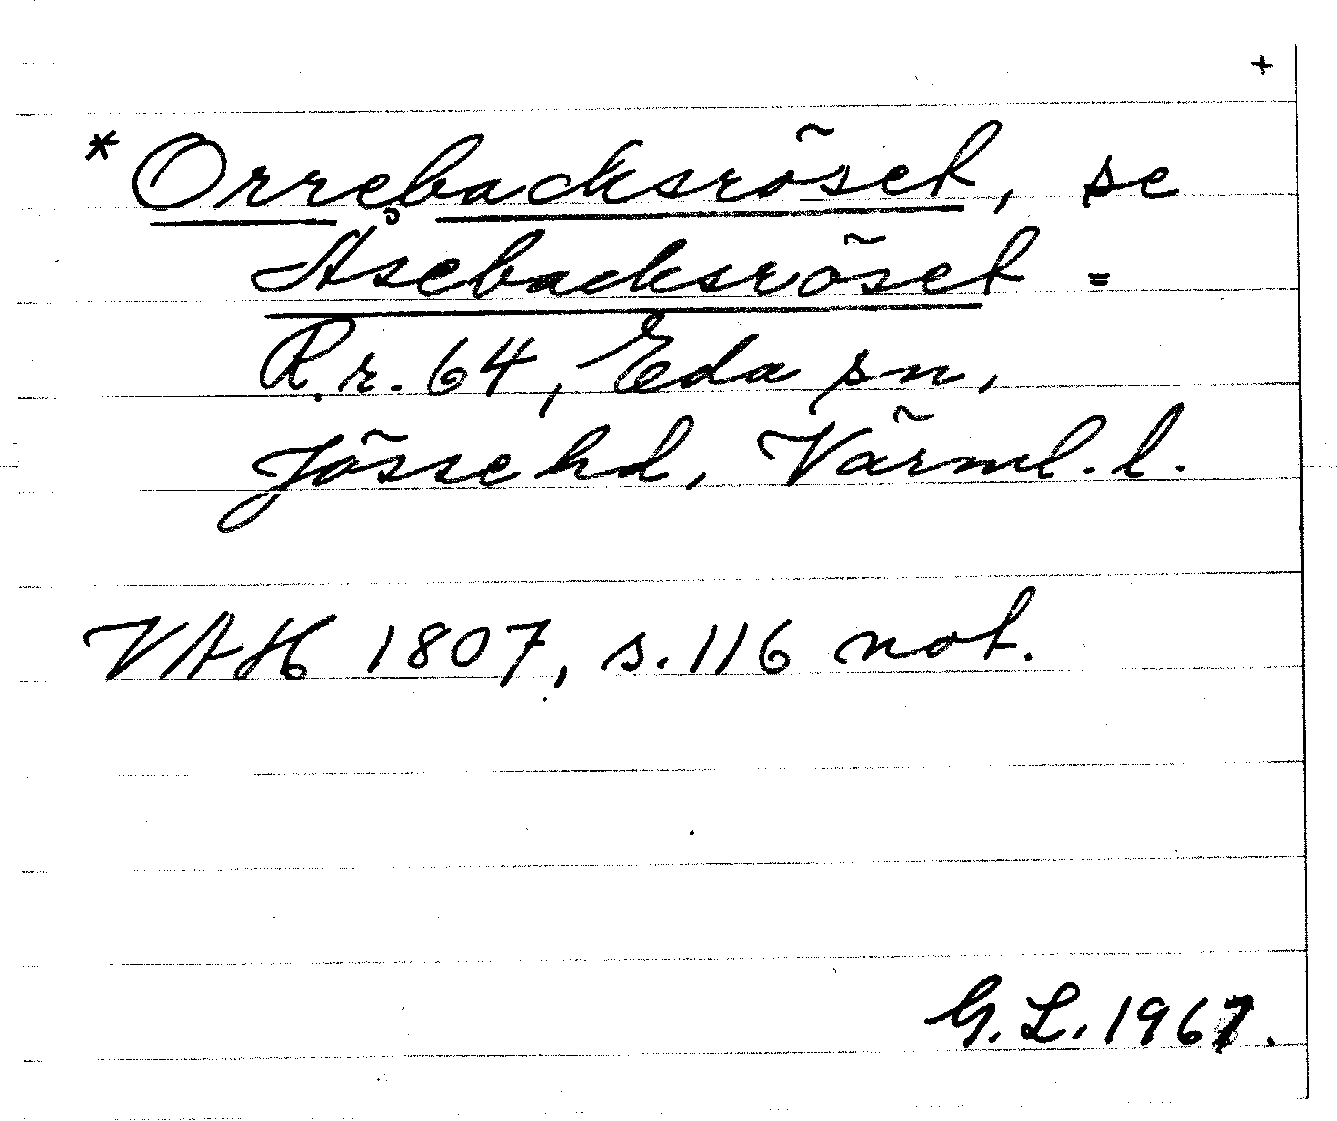 +
* Orrebacksröset, se
Åsebacksröset =
R.r. 64, Eda sn,
Jösse hd, Värml. l.
VAH 1807, s. 116 not.
G. L. 1967.